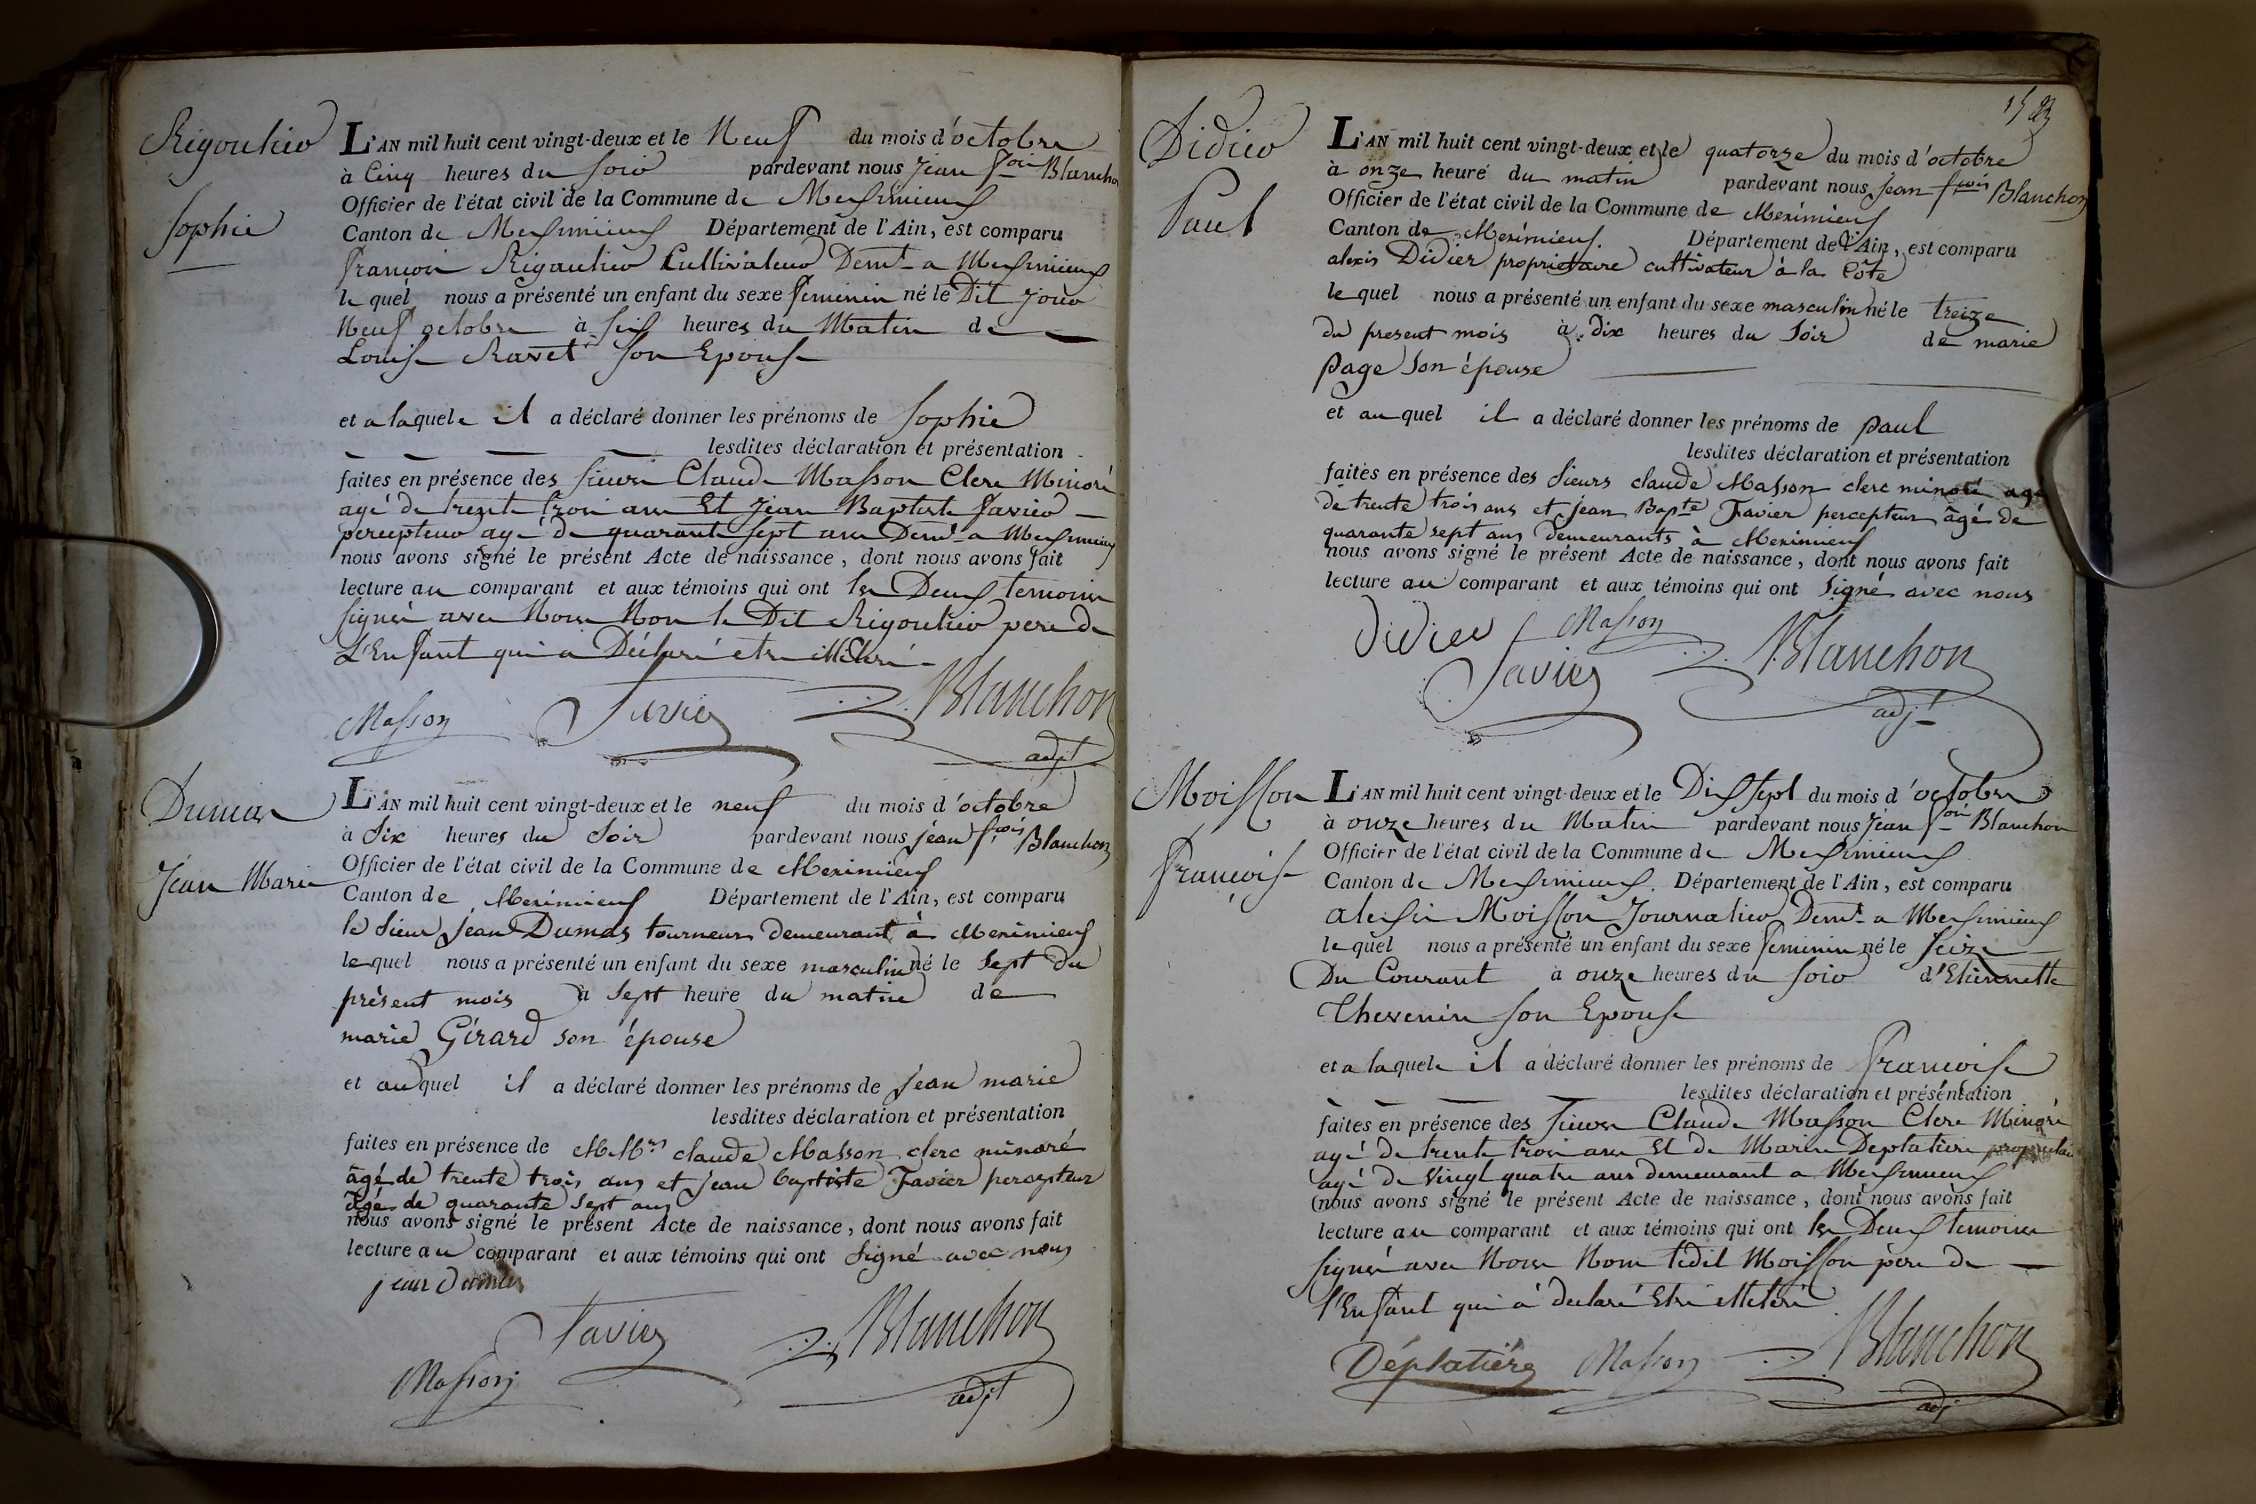 Rigoutier
Sophie
L'AN mil huit cent vingt-deux et le Neuf du mois d'octobre
à Cinq heures du soir pardevant nous Jean fois Blanchon
Officier de l'état civil de la Commune de Meximieux
Canton de Meximieux Département de l'Ain, est comparu
francois Rigoutier Cultivateur Demt a Meximieux
le quel nous a présenté un enfant du sexe feminin né le Dit jour
Neuf octobre à six heures du Matin de
Louise Ravet son Epouse
et a laquele il a déclaré donner les prénoms de Sophie
lesdites déclaration et présentation
faites en présence des sieurs Claude Masson Clerc Minoré
agé de trente trois ans Et Jean Baptiste favier
percepteur agé de quarante sept ans Demt a Meximieux
nous avons signé le présent Acte de naissance, dont nous avons fait
lecture au comparant et aux témoins qui ont les Deux temoins
signés avec Nous Non le Dit Rigoutier pere de
L'Enfant qui a Déclaré etre illeteré
Masson Favier Blanchon
adjt
Dumas
Jean Marie
L'AN mil huit cent vingt-deux et le neuf du mois d'octobre
à Six heures du Soir pardevant nous jean fçois Blanchon
Officier de l'état civil de la Commune de Meximieux
Canton de Meximieux Département de l'Ain, est comparu
le Sieur Jean Dumas tourneur demeurant à Meximieux
lequel nous a présenté un enfant du sexe masculin né le Sept du
présent mois à Sept heure du matin de
marie Gérard son épouse
et auquel il a déclaré donner les prénoms de Jean marie
lesdites déclaration et présentation
faites en présence de MMrs claude Masson clerc minoré
âgé de trente trois ans et jean baptiste Favier percepteur
âgé de quarante Sept ans
nous avons signé le présent Acte de naissance, dont nous avons fait
lecture au comparant et aux témoins qui ont Signé avec nous
jean Dumas
Favier Blanchon
Masson adjt
Didier
Paul
L'AN mil huit cent vingt-deux et le quatorze du mois d'octobre
à onze heure du matin pardevant nous Jean fçois Blanchon
Officier de l'état civil de la Commune de Meximieux
Canton de Meximieux. Département de l'Ain, est comparu
alexis Didier proprietaire cultivateur à la Côte
le quel nous a présenté un enfant du sexe masculin né le treize
du present mois à Dix heures du Soir de marie
Page Son épouse
et au quel il a déclaré donner les prénoms de Paul
lesdites déclaration et présentation
faites en présence des Sieurs claude Masson clerc minoré agé
de trente trois ans et jean Bapte Favier percepteur âgé de
quarante sept ans demeurants à Meximieux
nous avons signé le présent Acte de naissance, dont nous avons fait
lecture au comparant et aux témoins qui ont Signé avec nous
Didier Masson
Favier Blanchon
adjt
Moisson
françoise
L'AN mil huit cent vingt-deux et le Dix sept du mois d'octobre
à onze heures du Matin pardevant nous Jean fois Blanchon
Officier de l'état civil de la Commune de Meximieux
Canton de Meximieux. Département de l'Ain, est comparu
alexis Moisson Journalier Demt a Meximieux
le quel nous a présenté un enfant du sexe feminin né le seize
Du Courant à onze heures du soir d'Etiennette
Thevenin son Epouse
et a laquele il a déclaré donner les prénoms de françoise
lesdites déclaration et présentation
faites en présence des sieurs Claude Masson Clerc Minoré
agé de trente trois ans Et de Marin Deplatiere
agé de vingt quatre ans demeurant a Meximieux
nous avons signé le présent Acte de naissance, dont nous avons fait
lecture au comparant et aux témoins qui ont les Deux temoins
signés avec Nous Non ledit Moisson père de
l'Enfant qui a declaré Etre illeteré
Déplatière Masson Blanchon
adj